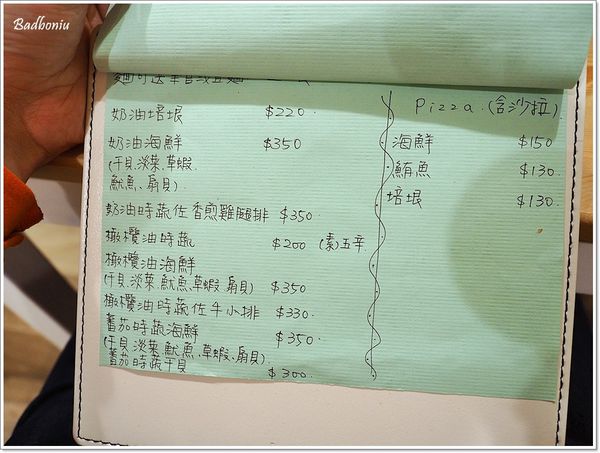 Badboniu
麵可選
奶油培垠 $220.
奶油海鮮 $350
(干貝.淡菜.草蝦.
魷魚、扇貝).
奶油時蔬佐香煎雞腿排 $350.
橄欖油時蔬 $200 (素)五辛
橄欖油海鮮
(干貝.淡菜.魷魚.草蝦.扇貝) $350
橄欖油時蔬佐牛小排 $330.
蕃茄時蔬海鮮 $350.
(干貝.淡菜.魷魚、草蝦、扇貝).
蕃茄時蔬干貝 $300.
Pizza.(含沙拉).
海鮮 $150
鮪魚 $130.
培垠 $130.